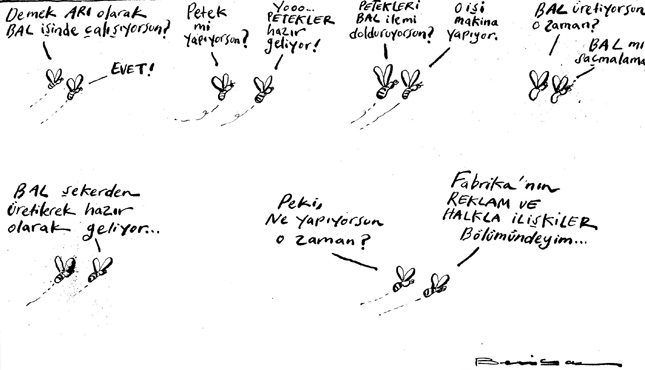 Demek ARI olarak
BAL işinde çalışıyorsun?
EVET!
Petek
mi
yapıyorsun?
Yooo...
PETEKLER
hazır
geliyor!
PETEKLERİ
BAL ilemi
dolduruyorsun?
O işi
makina
yapıyor.
BAL üretiyorsun
o zaman?
BAL mı
saçmalama
BAL şekerden
üretilerek hazır
olarak geliyor...
Peki,
Ne yapıyorsun
o zaman?
Fabrika'nın
REKLAM VE
HALKLA İLİŞKİLER
Bölümündeyim...